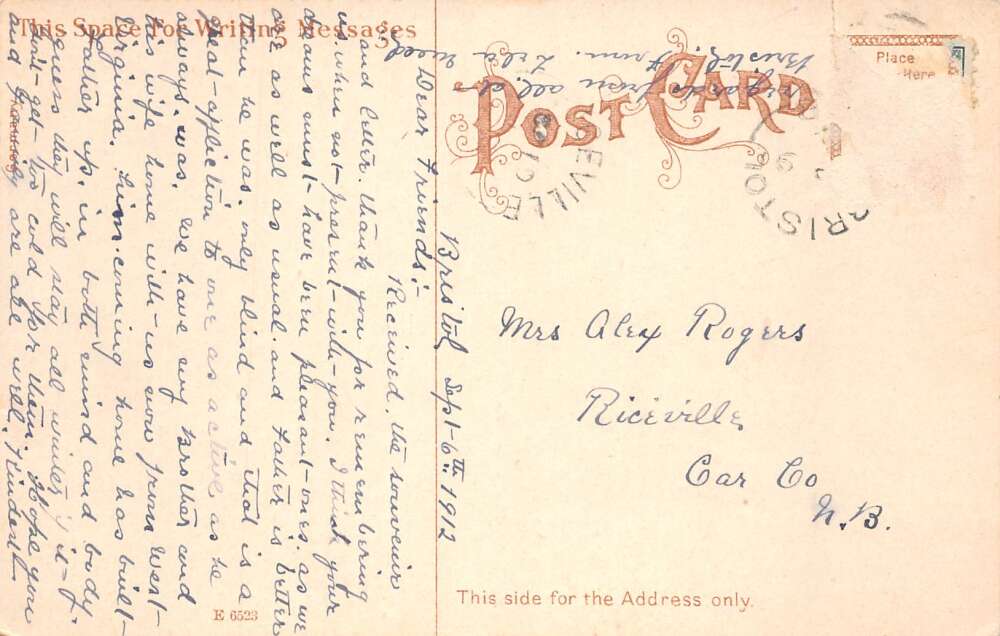 This Space For Writing Messages
POST CARD
Place
Here
BRISTOL
EVILLE
Bristol Sept 6th 1912
Dear Friends;-
Received the souvenir
and letter. thank you for remembering
us when not present with you. I think your
must have been pleasant ones. as we
are as well as usual. and Father is better
than he was. only blind and that is a
great affliction to one as active as he
always was. we have my Brother and
his wife home with us now from West
Virginia. him coming home has built
Father up. in both mind and body.
guess they will stay all winter if it
don't get too cold for them. Hope you
and family are all well. Kindest
regards from all at
Bristol. From Lela
Mrs Alex Rogers
Riceville
Car Co
N.B.
E 6523
This side for the Address only.